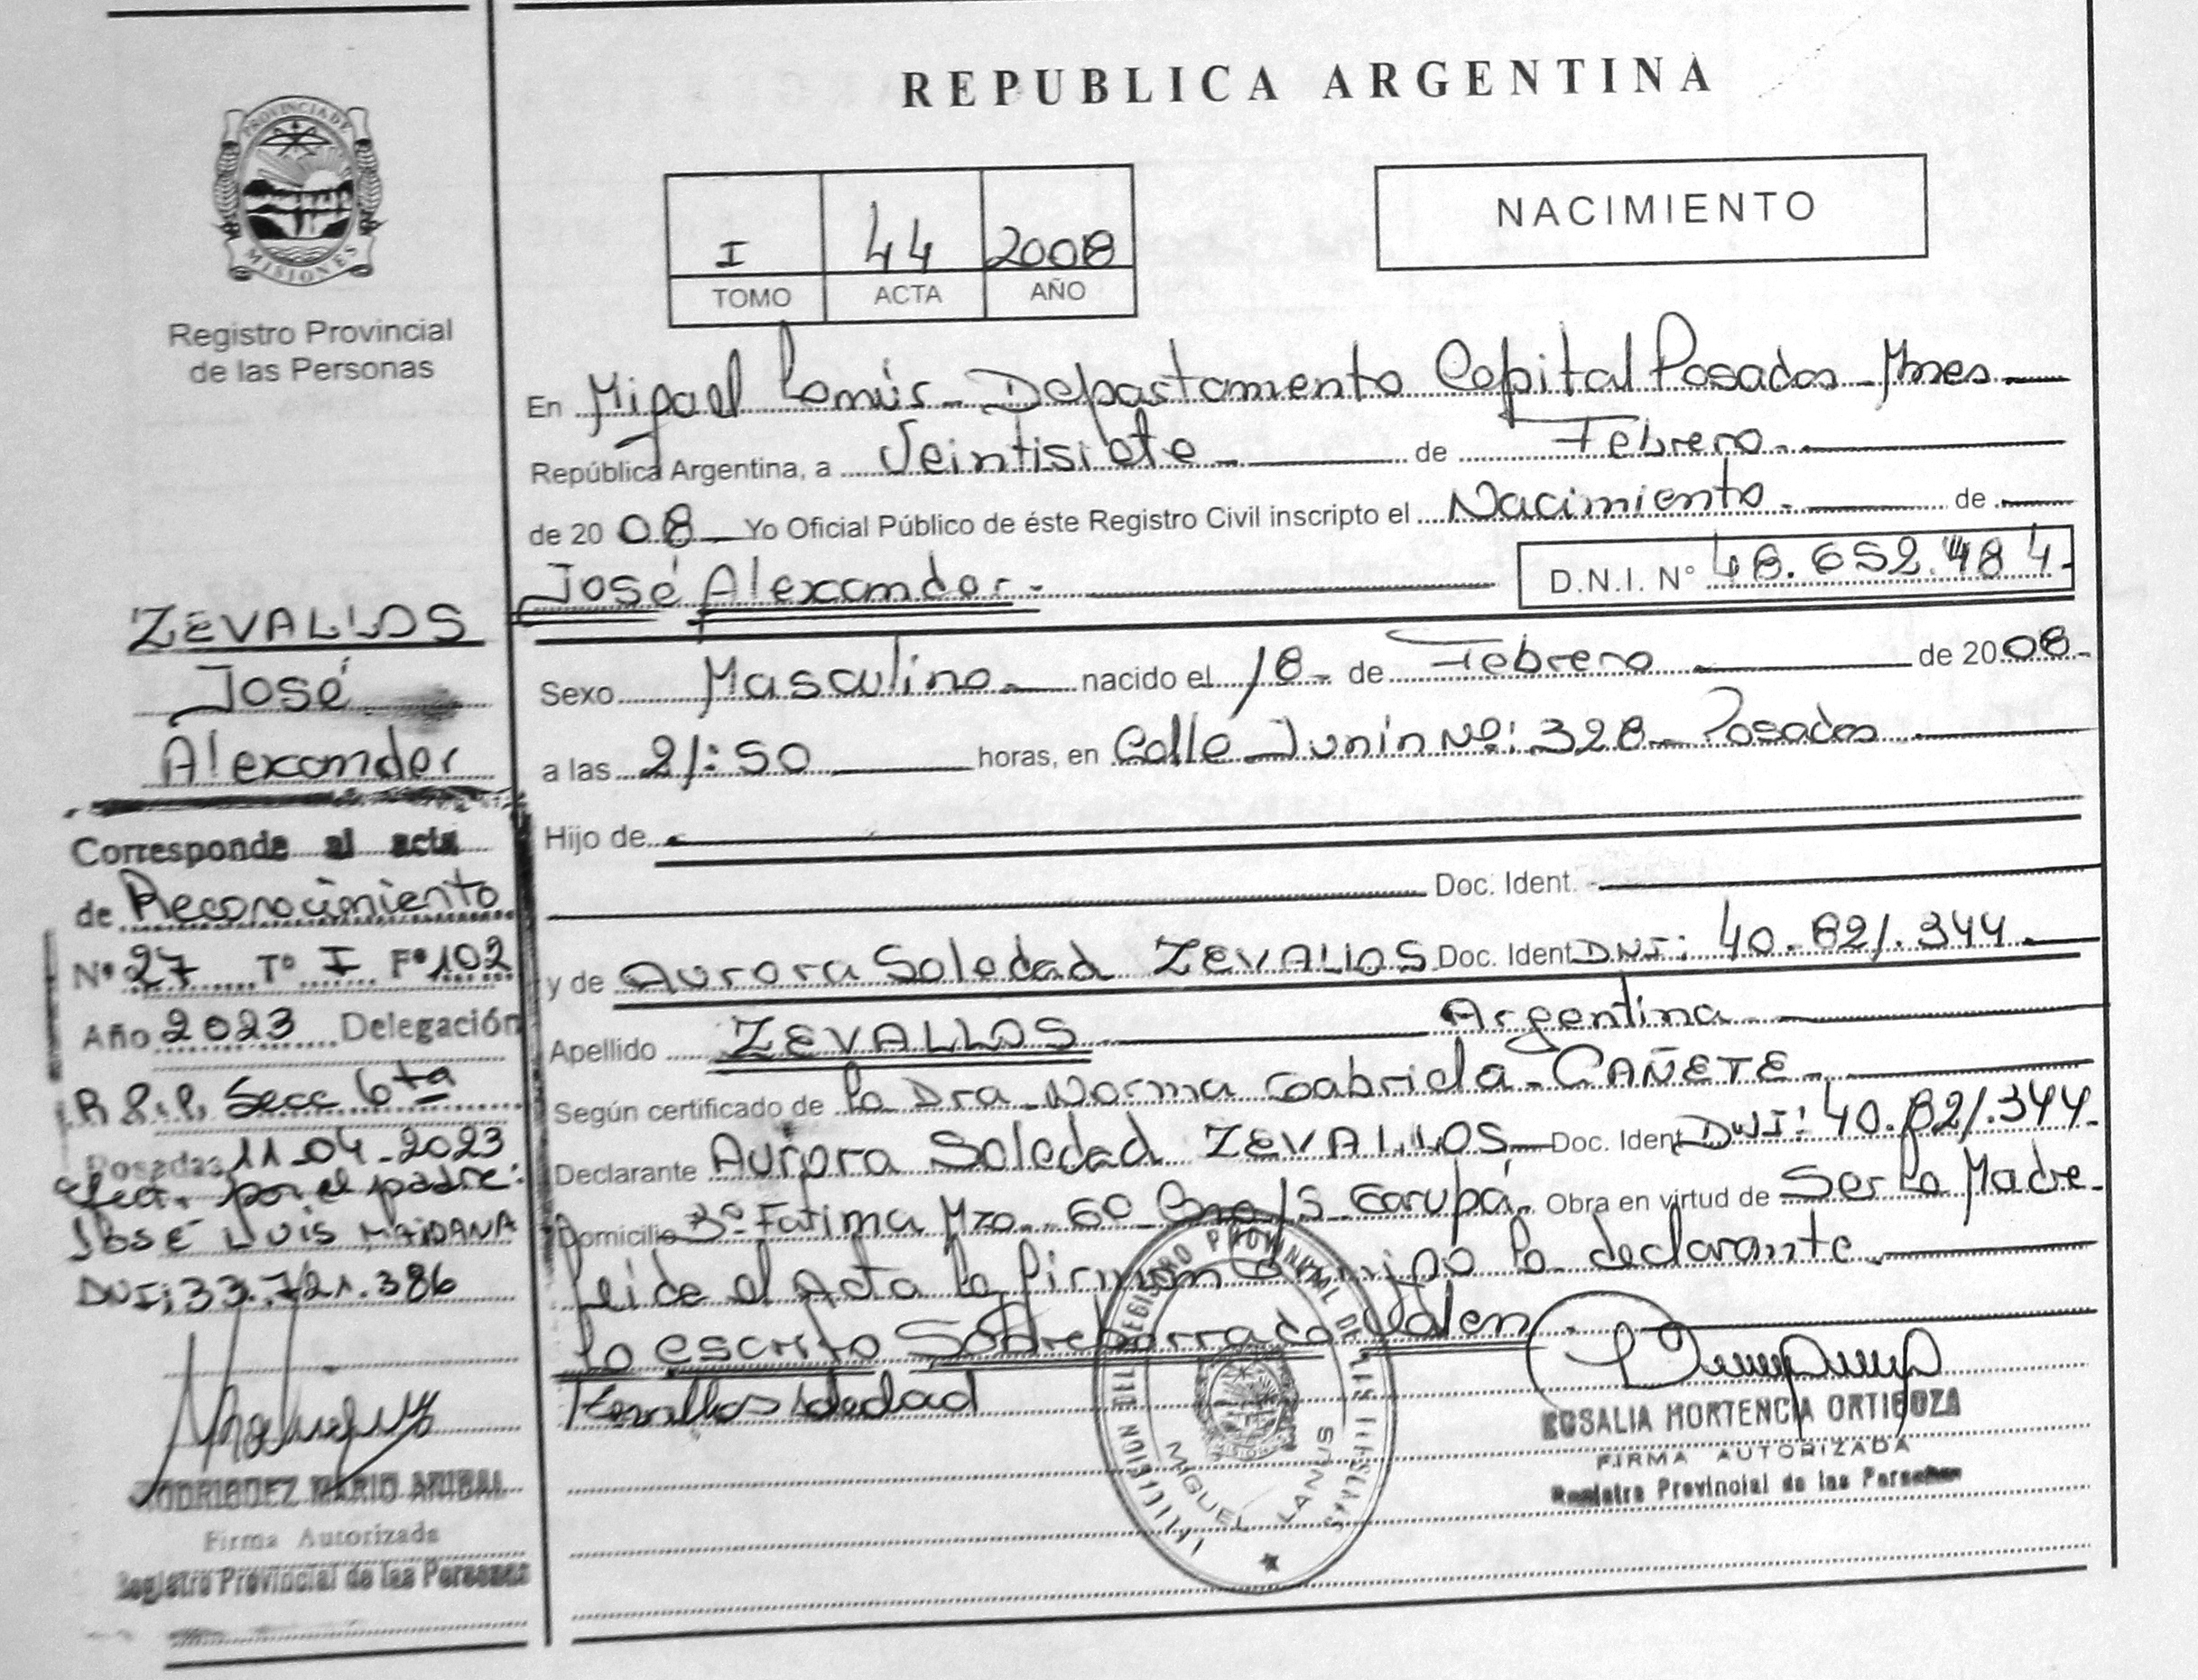 REPUBLICA ARGENTINA
PROVINCIA DE
MISIONES
Registro Provincial
de las Personas
I 44 2008
TOMO ACTA AÑO
NACIMIENTO
En Miguel Lanús - Departamento Capital Posadas - Mnes -
República Argentina, a Veintisiete - de Febrero -
de 20 08 - Yo Oficial Público de éste Registro Civil inscripto el Nacimiento - de
José Alexander - D.N.I. N° 48.652.484 -
Sexo Masculino - nacido el 18 - de Febrero de 20 08 -
a las 21:50 horas, en Calle Junín Nº: 328 - Posadas
Hijo de
Doc. Ident.
y de Aurora Soledad ZEVALLOS Doc. Ident. DNI: 40.821.344 -
Apellido ZEVALLOS Argentina
Según certificado de la Dra. Norma Gabriela - CAÑETE -
Declarante Aurora Soledad ZEVALLOS - Doc. Ident. DNI: 40.821.344 -
Domicilio Bº Fatima Mza. 60 - S - Garupá - Obra en virtud de Ser la Madre -
Leide el Acta la firman conmigo la declarante -
lo escrito Sobreborrado Valen -
Zevallos Soledad
ROSALIA HORTENCIA ORTIGOZA
FIRMA AUTORIZADA
Registro Provincial de las Personas
REGISTRO PROVINCIAL DE LAS PERSONAS
MIGUEL LANUS
ZEVALLOS
José
Alexander
Corresponde al acta
de Reconocimiento
Nº 27 Tº I Fº 102
Año 2023 Delegación
R.P.P. Secc 6ta
Posadas 11-04-2023
efect. por el padre:
JOSÉ LUIS MAIDANA
DNI: 33.721.386
RODRIGUEZ MARIO ANIBAL
Firma Autorizada
Registro Provincial de las Personas